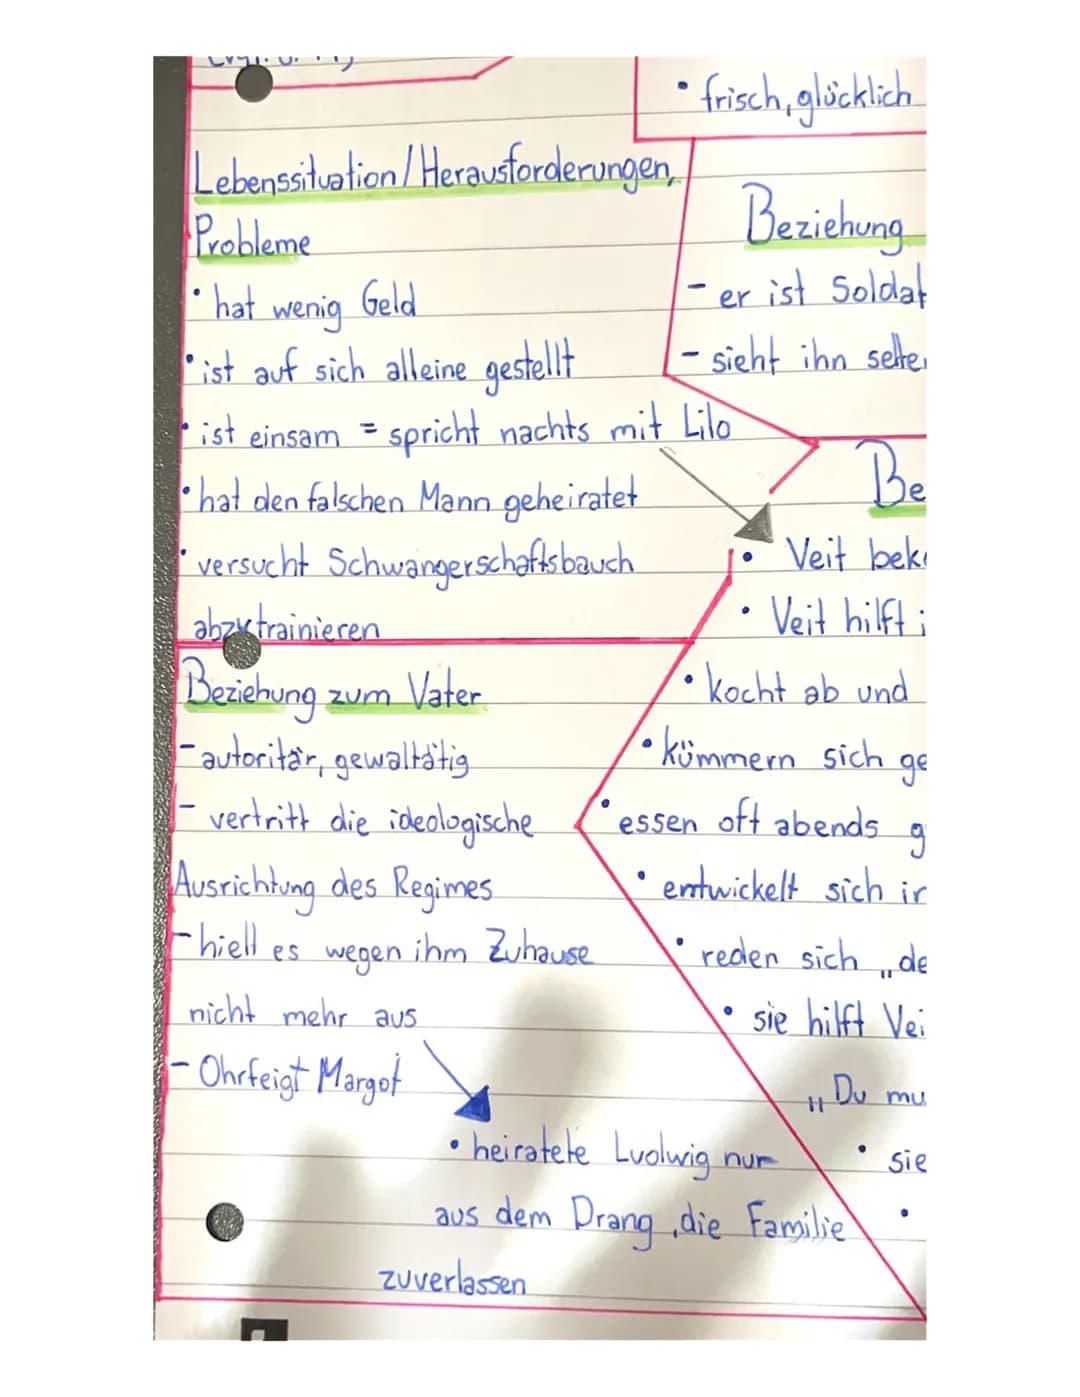 • frisch, glücklich
Lebenssituation/Herausforderungen,
Probleme
• hat wenig Geld
• ist auf sich alleine gestellt
• ist einsam = spricht nachts mit Lilo
• hat den falschen Mann geheiratet
• versucht Schwangerschaftsbauch
abzutrainieren
Beziehung
- er ist Soldat
- sieht ihn
Be
• Veit
• Veit hilft
• kocht ab und
• kümmern sich ge
• essen oft abends g
• entwickelt sich
• reden sich „de
• sie hilft Vei
„Du mu
• sie
•
Beziehung zum Vater
- autoritär, gewalttätig
- vertritt die ideologische
Ausrichtung des Regimes
- hielt es wegen ihm Zuhause
nicht mehr aus
- Ohrfeigt Margot
• heiratete Ludwig nur
aus dem Drang, die Familie
zuverlassen